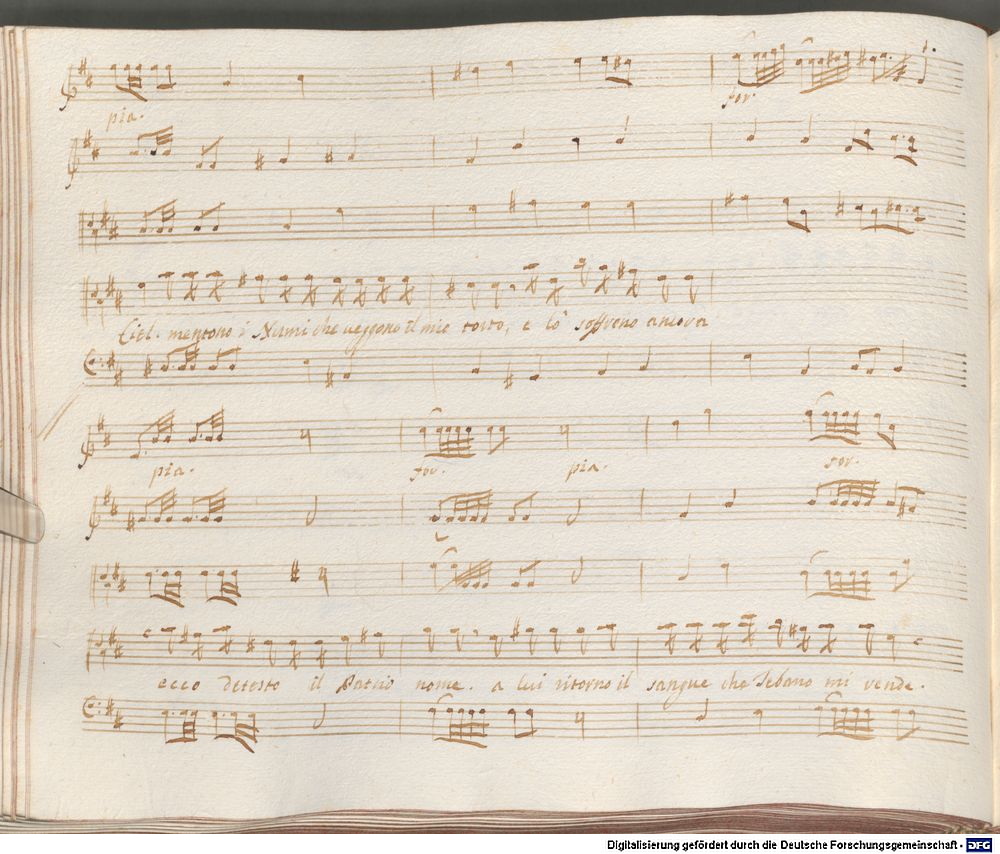 for.
pia.
Ciel. mentono i Numi che veggono il mio torto, e lo soffrono ancora
pia. for. pia. for.
ecco detesto il Patrio nome. a lui ritorno il sangue che Sebano mi vende.
Digitalisierung gefördert durch die Deutsche Forschungsgemeinschaft - DFG